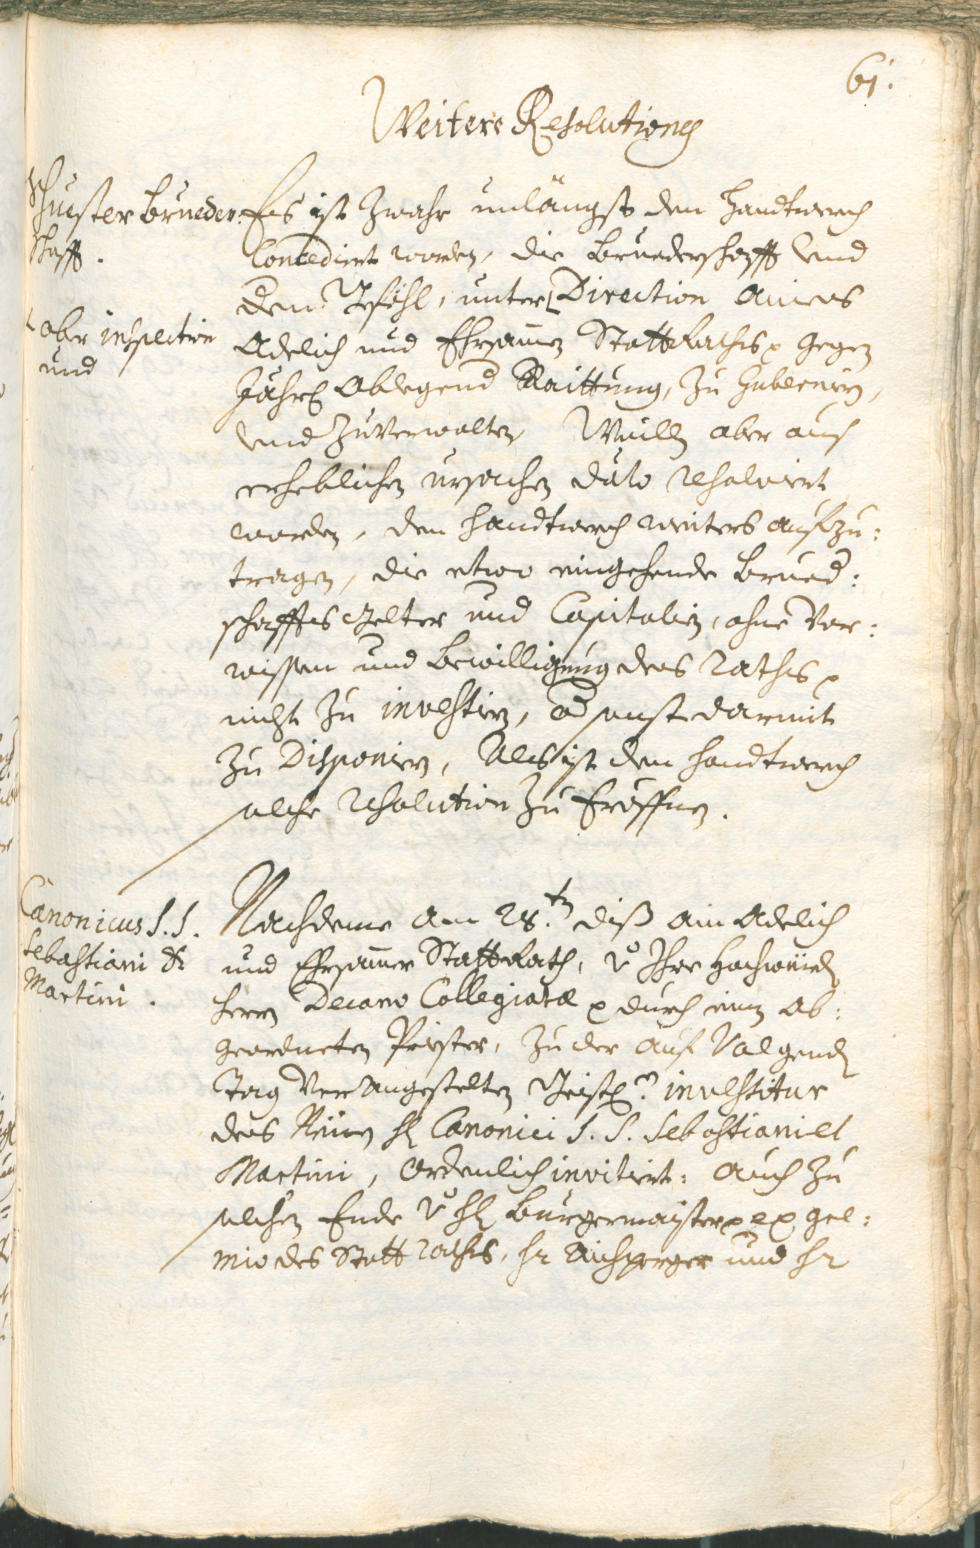 61.
Weitere Resolutiones
Schuester Brueder:
schafft.
Es ist zwahr unlängst dem Handtwerch
Concediert worden, die Bruederschafft und
dem Zöhl, unter Direction aines
ober inspection
und
Adelich und Ehrsamen Statt Raths gegen
Jährl ablegend Raittung, zu gubernirn,
und zuverwalten, Weilln aber auß
erheblichen ursachen dato resolviert
worden, dem Handtwerch weiters aufzu:
tragen, die etwo eingehende Brued:
schaffts Gelter und Capitalien, ohne vor:
wissen und Bewilligung des Raths
nicht zu investirn, od sonst darmit
zu Disponirn, Als ist dem Handtwerch
solche resolution zu Eröffnen.
Canonicus S. S.
Sebastiani &
Martini.
Nachdeme am 28.ten diß ain Adelich
und Ehrsamer Statt Rath, v Ihro Hochwürd
Herrn Decano Collegiatæ durch einen ab:
geordneten Priester, zu der auf Volgend
Tag Verangestelten Geistl. investitur
des Neuen H Canonici S. S. Sebastiani et
Martini, Ordenlich invitiert: auch zu
solchen Ende v H Burgermaister ex gre:
mio des Statt Raths, Hr Aichperger und Hr